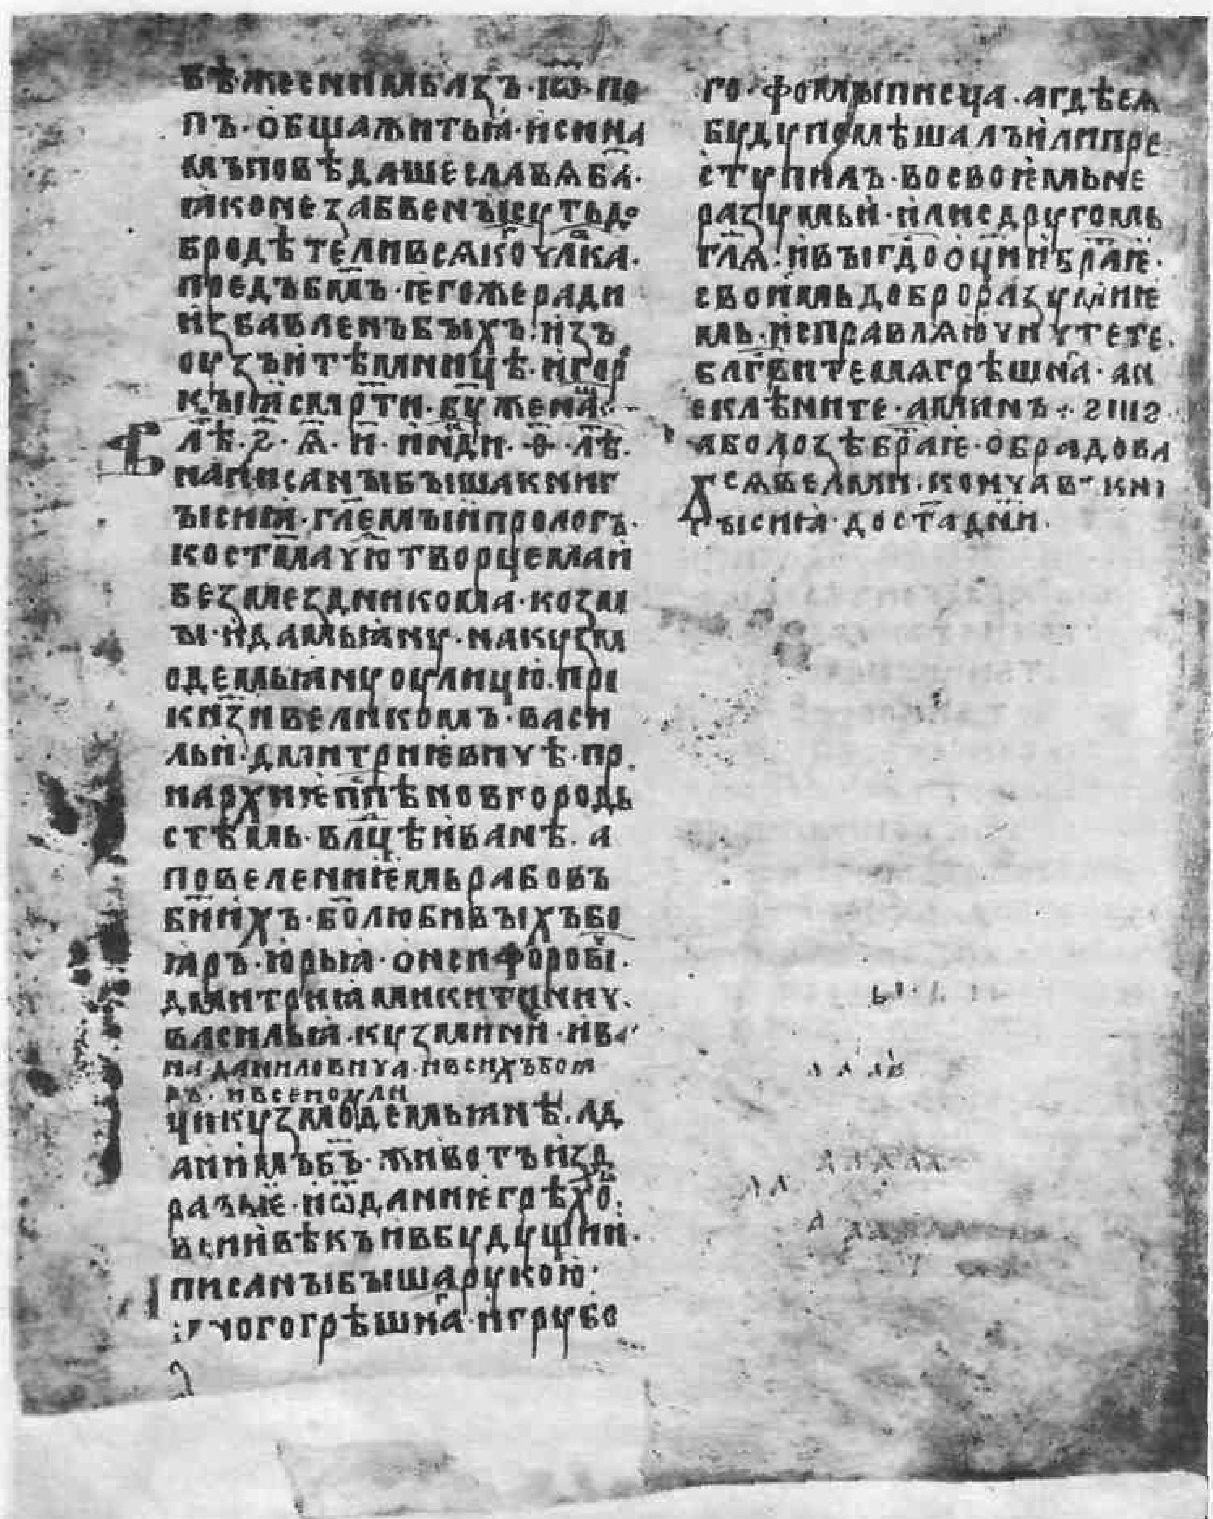 бѣже с нимь азъ · іѡ· по
пъ · обща житьꙗ · и сь ни
мъ повѣдаше славѧ ба҃ ·
ꙗко не забвенъ су ть до
бродѣтели всѧког҃ чл҃ка ·
предъ бм҃ь · ѥгоже ради
избавленъ быхъ · изъ
оузъ и тѣмницѣ · и гор
кыꙗ смр҃ти · бу҃ же нш҃
в лѣ҃ · ҂ѕ҃ · ѿ · и҃ · инди҃ · ѳ҃ · лѣ҃ ·
написаны быша книг
ы сиꙗ · гл҃емыи прологъ ·
кост҃мачю творцема и
безмездникома · козм
ы · и дамьꙗну · на кузм
одемьꙗну оулицю · при
кнз҃и великомъ · васи
льи · дмитриѥвичѣ · пр
и архиѥпп҃ѣ новгородь
стѣмь · влдц҃ѣ иванѣ · а
повелениѥмь рабовъ
бж҃иихъ · бо҃любивыхъ бо
ꙗръ · юрьꙗ · онсифорови҃ ·
дмитриꙗ микитинич ·
васильꙗ · кузминич · ива
на · даниловича · и всихъ боꙗ
ръ · и всеи оули
ци кузмодемьꙗнѣ · да
аи имъ бъ҃ · животъ и зд
равьѥ · и ѿданиѥ грѣхо҃въ
в сии вѣкъ и в будущии ·
писаны быша рукою ·
многогрѣшнаг · и грубо
го · фомы писца · а гдѣ сѧ
буду помѣшалъ или пре
ступилъ · во своѥмь не
разумьи · или с другомь
гл҃ѧ · и вы гд҃о оц҃и и бра҃тиѥ ·
своимь доброразуминиѥ
мь · исправлѧючи чтете ·
бл҃гвите мѧ грѣшнаг · а н
е клените · аминь ·
а боло зѣ бра҃тиѥ · обрадова
хсѧ велми · кончав · кни
гы сиꙗ · до ста дн҃ии ·